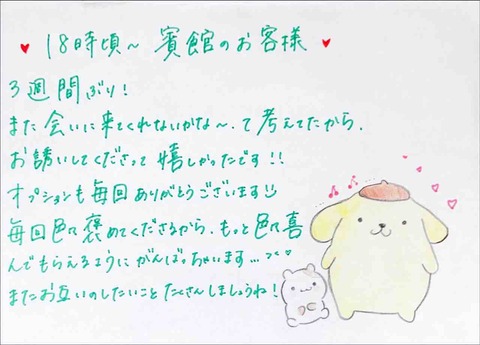 ♥ 18時頃~ 賓館のお客様 ♥
3週間ぶり!
また会いに来てくれないかな〜、て考えてたから、
お誘いしてくださって嬉しかったです!!
オプションも毎回ありがとうございます
毎回色々褒めてくださるから、もっと色々喜
んでもらえるようにがんばっちゃいます...
またお互いのしたいことたくさんしましょうね!